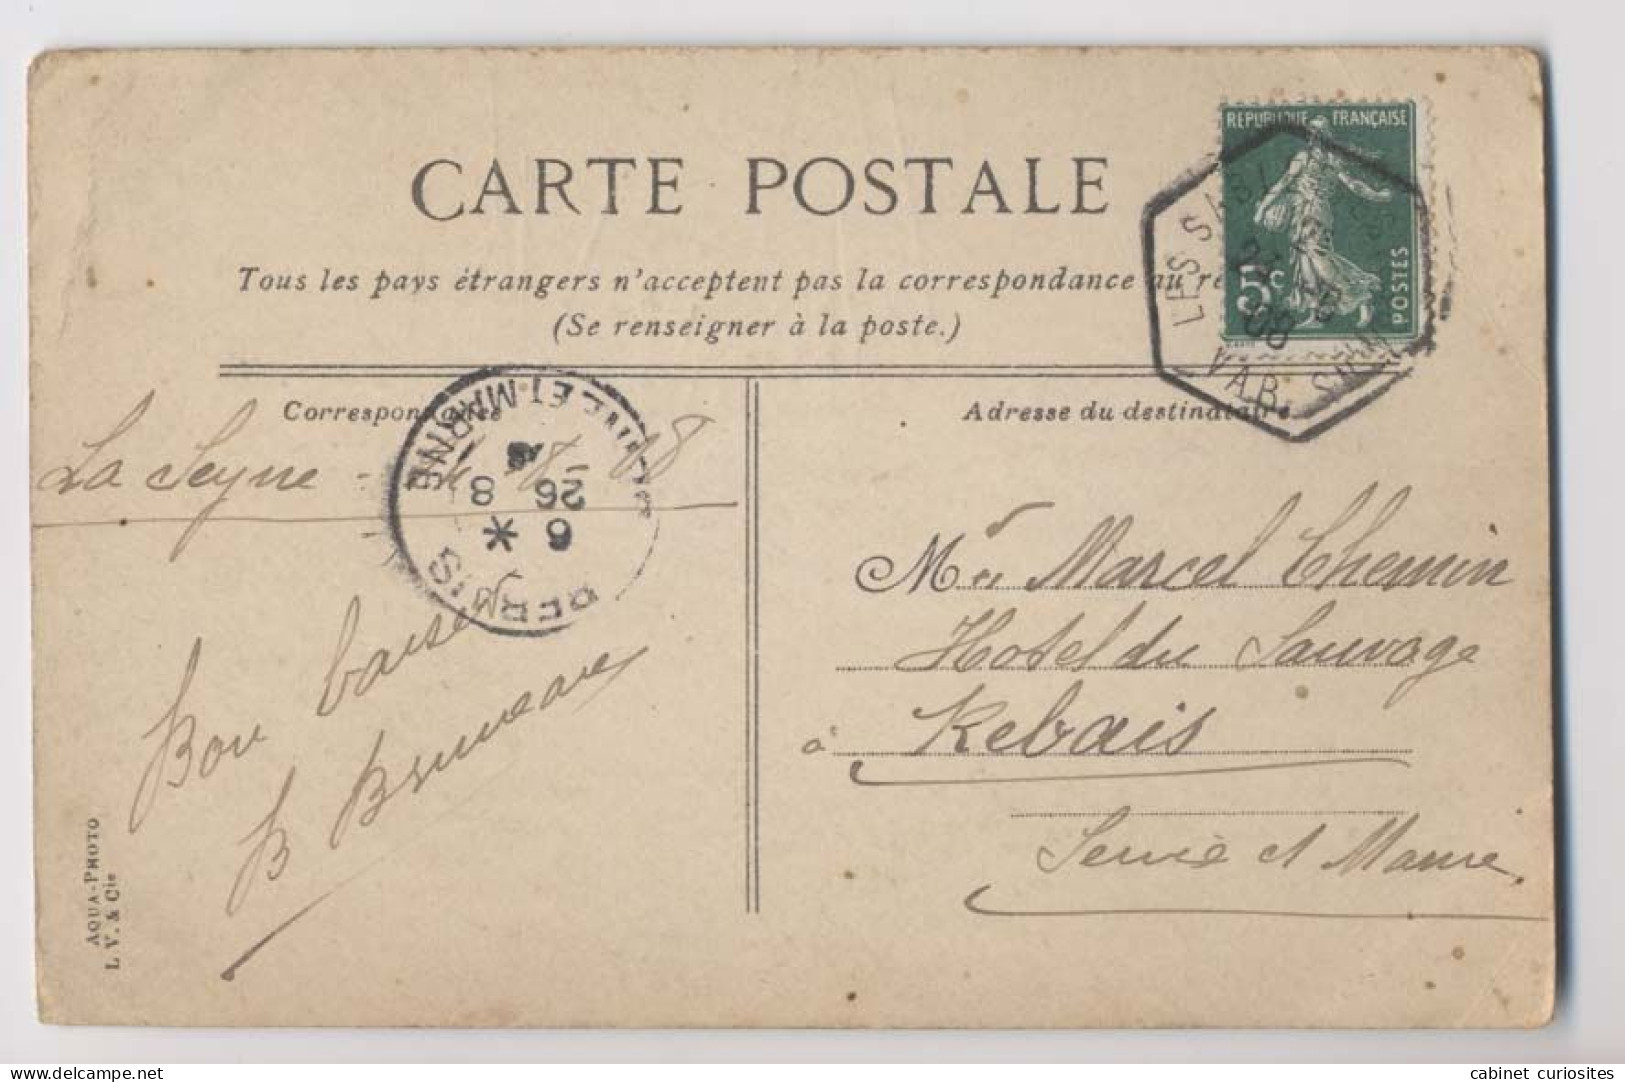 CARTE POSTALE
REPUBLIQUE FRANÇAISE
5c
POSTES
LES SABL
24
08
VAR
Tous les pays étrangers n'acceptent pas la correspondance au re
(Se renseigner à la poste.)
Correspondance
Adresse du destinataire
La Seyne - 8 - 08
REBAIS
6 *
26 8
08
SEINE ET MARNE
Bon baiser
B Bruneau
Mr Marcel Chemin
Hotel du Sauvage
à Rebais
Seine et Marne.
AQUA-PHOTO
L. V. & Cie
cabinet curiosites